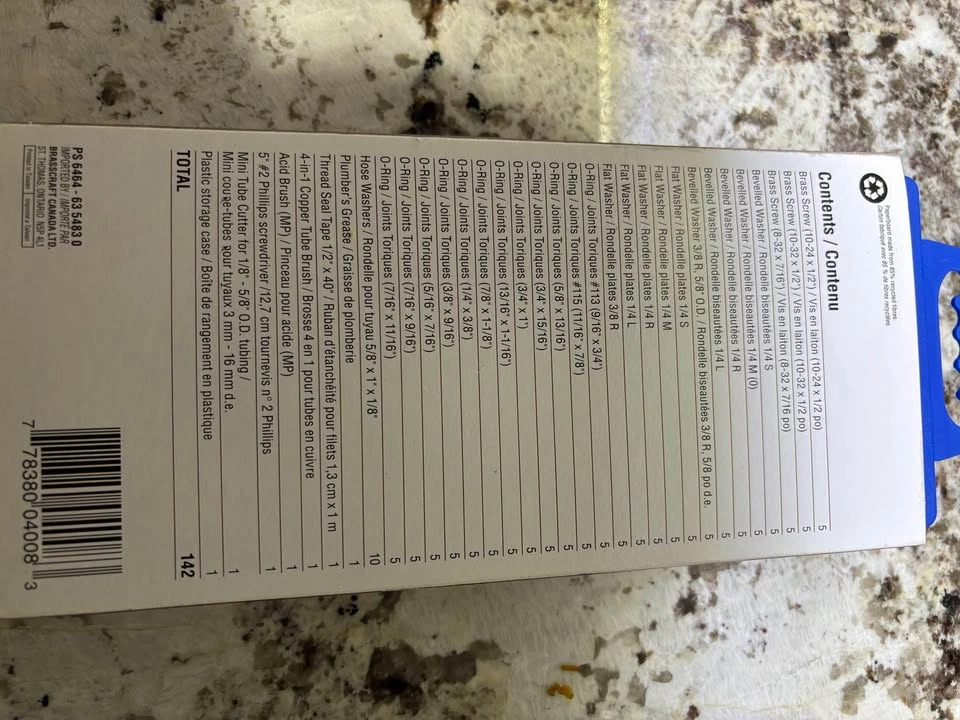 Paperboard made from 85% recycled fibres.
Carton fabriqué avec 85 % de fibres recyclées.
Contents / Contenu
Brass Screw (10-24 x 1/2") / Vis en laiton (10-24 x 1/2 po) 5
Brass Screw (10-32 x 1/2") / Vis en laiton (10-32 x 1/2 po) 5
Brass Screw (8-32 x 7/16") / Vis en laiton (8-32 x 7/16 po) 5
Bevelled Washer / Rondelle biseautées 1/4 S 5
Bevelled Washer / Rondelle biseautées 1/4 M (0) 5
Bevelled Washer / Rondelle biseautées 1/4 R 5
Bevelled Washer / Rondelle biseautées 1/4 L 5
Bevelled Washer 3/8 R, 5/8" O.D. / Rondelle biseautées 3/8 R, 5/8 po d.e. 5
Flat Washer / Rondelle plates 1/4 S 5
Flat Washer / Rondelle plates 1/4 M 5
Flat Washer / Rondelle plates 1/4 R 5
Flat Washer / Rondelle plates 1/4 L 5
Flat Washer / Rondelle plates 3/8 R 5
O-Ring / Joints Toriques #113 (9/16" x 3/4") 5
O-Ring / Joints Toriques #115 (11/16" x 7/8") 5
O-Ring / Joints Toriques (5/8" x 13/16") 5
O-Ring / Joints Toriques (3/4" x 15/16") 5
O-Ring / Joints Toriques (3/4" x 1") 5
O-Ring / Joints Toriques (13/16" x 1-1/16") 5
O-Ring / Joints Toriques (7/8" x 1-1/8") 5
O-Ring / Joints Toriques (1/4" x 3/8") 5
O-Ring / Joints Toriques (3/8" x 9/16") 5
O-Ring / Joints Toriques (5/16" x 7/16") 5
O-Ring / Joints Toriques (7/16" x 9/16") 5
O-Ring / Joints Toriques (7/16" x 11/16") 5
Hose Washers / Rondelle pour tuyau 5/8" x 1" x 1/8" 10
Plumber's Grease / Graisse de plomberie 1
Thread Seal Tape 1/2" x 40" / Ruban d'étanchéité pour filets 1,3 cm x 1 m 1
4-in-1 Copper Tube Brush / Brosse 4 en 1 pour tubes en cuivre 1
Acid Brush (MP) / Pinceau pour acide (MP) 1
5" #2 Phillips screwdriver /12,7 cm tournevis n° 2 Phillips 1
Mini Tube Cutter for 1/8" - 5/8" O.D. tubing /
Mini coupe-tubes pour tuyaux 3 mm - 16 mm d.e. 1
Plastic storage case / Boîte de rangement en plastique 1
TOTAL 142
PS 6464 - 63 5483 0
IMPORTED BY / IMPORTÉ PAR
BRASSCRAFT CANADA LTD.
ST. THOMAS, ONTARIO, N5P 4L1
Printed in Taiwan Imprimé à Taiwan
7 78380 04008 3